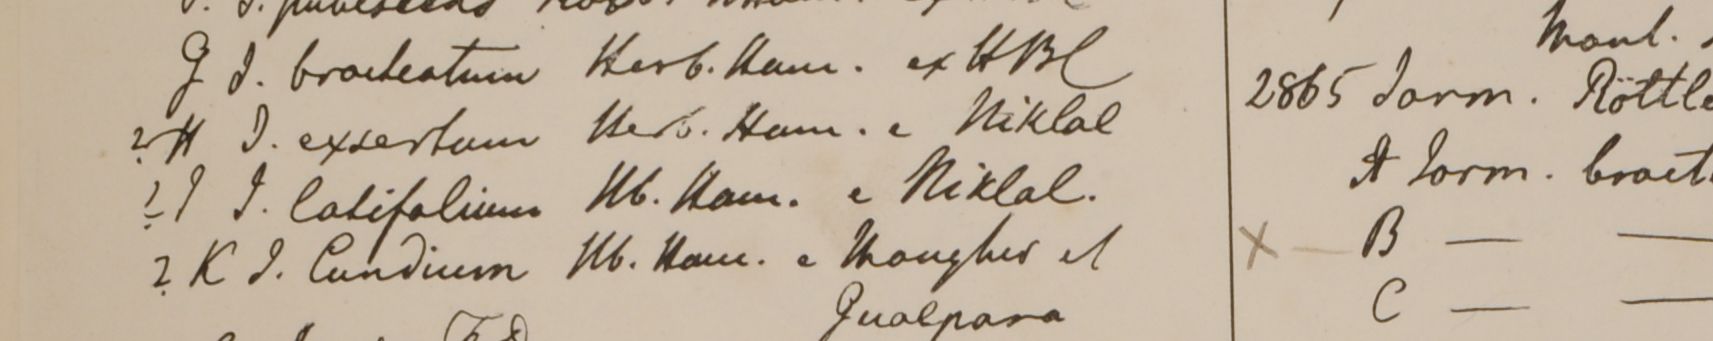 G J. bracteatum Herb. Ham. ex HBC
? H J. exsertum Herb. Ham. e Niklal
? I J. latifolium Hb. Ham. e Niklal.
? K J. Cundium Hb. Ham. e Mongher et
Gualpara
Mont.
2865 Jasm. Röttle
A Jasm. bract
X — B — —
C — —